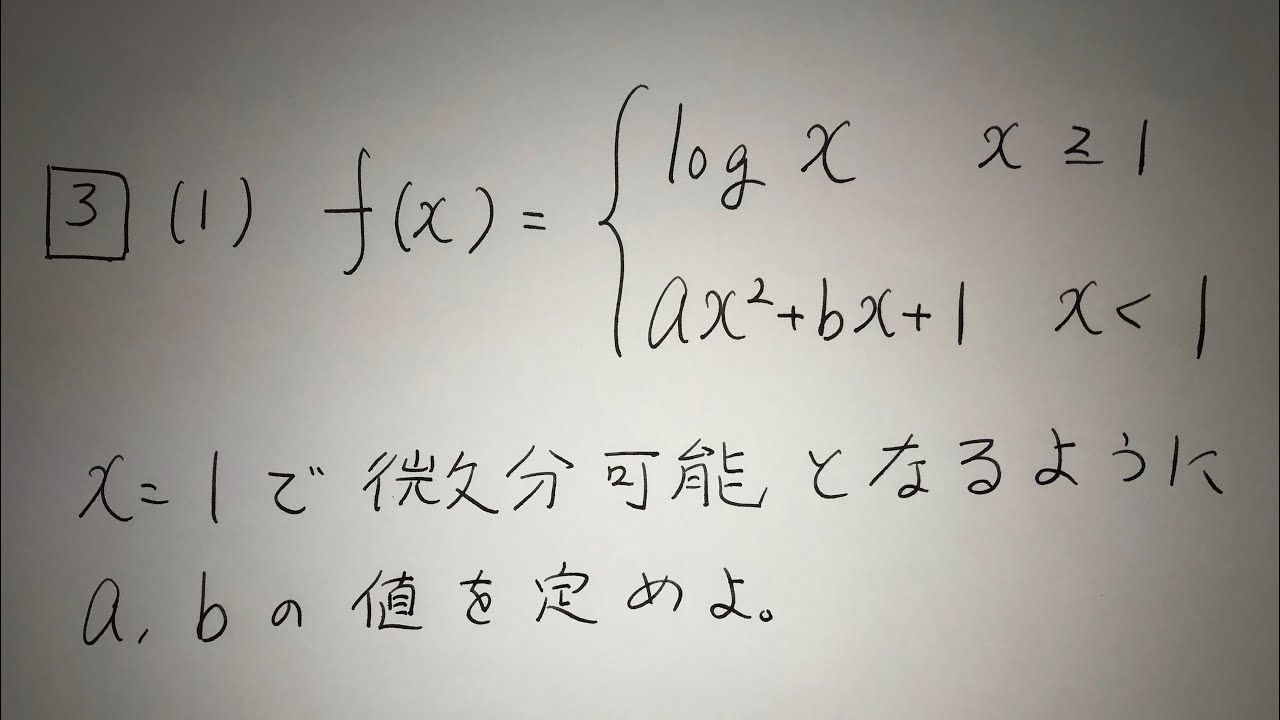 3 (1) f(x) = { log x x ≧ 1
ax²+bx+1 x < 1
x=1で微分可能となるように
a, bの値を定めよ。